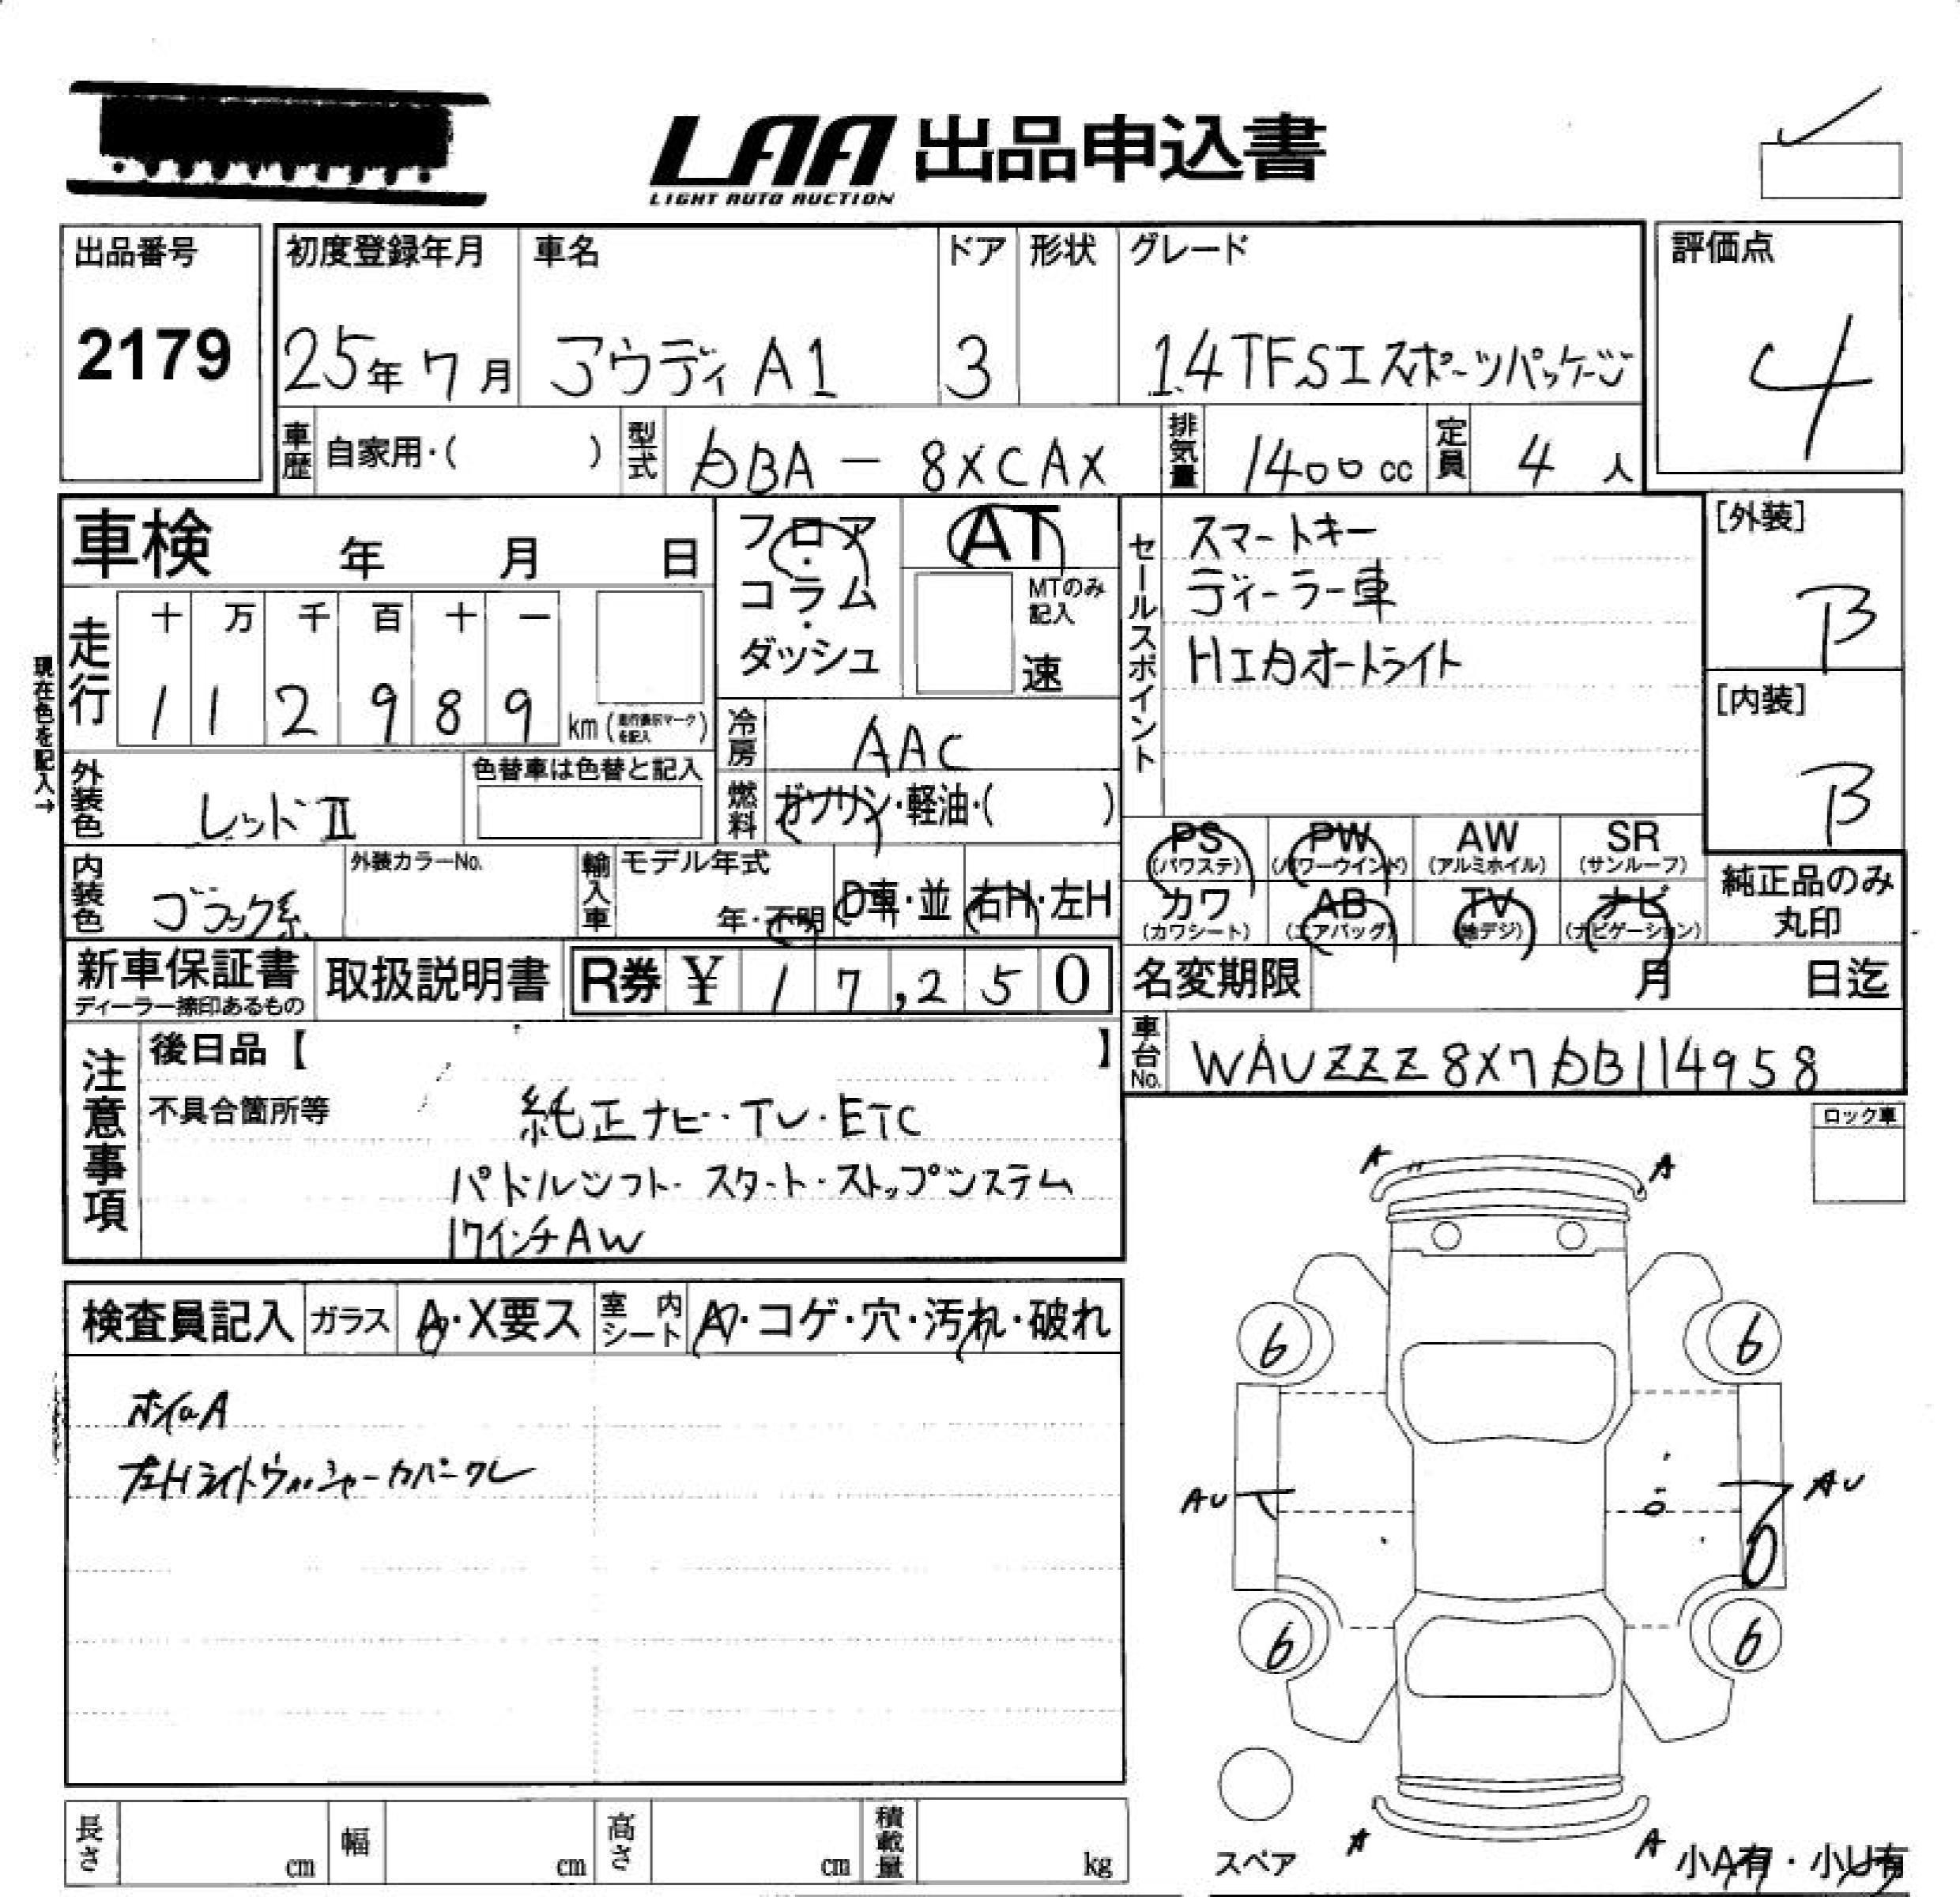 LAA 出品申込書
LIGHT AUTO AUCTION
出品番号
2179
初度登録年月
25年7月
車名
アウディ A1
ドア
3
形状
グレード
1.4TFSI スポーツパッケージ
評価点
4
車歴
自家用・( )
型式
DBA - 8XCAX
排気量
1400cc
定員
4人
車検 年 月 日
フロア・
コラム・
ダッシュ
AT
MTのみ
記入
速
セールスポイント
スマートキー
ディーラー車
HIDオートライト
[外装]
B
[内装]
B
現在色を記入→
走行
十 万 千 百 十 一
1 1 2 9 8 9
km(走行表示マークを記入)
冷房
AAC
外装色
レッドII
色替車は色替と記入
燃料
ガソリン・軽油・( )
PS
(パワステ)
PW
(パワーウインド)
AW
(アルミホイル)
SR
(サンルーフ)
内装色
ブラック系
外装カラーNo.
輸入車
モデル年式
年・不明
D車・並
右H・左H
カワ
(カワシート)
AB
(エアバッグ)
TV
(地デジ)
ナビ
(ナビゲーション)
純正品のみ
丸印
新車保証書
ディーラー捺印あるもの
取扱説明書
R券 ¥ 1 7,2 5 0
名変期限 月 日迄
車台No.
WAUZZZ8X7DB114958
注意事項
後日品【 】
不具合箇所等
純正ナビ・TV・ETC
パドルシフト・スタート・ストップシステム
17インチAW
ロック車
A A
検査員記入
ガラス
A・X要ス
室内シート
A・コゲ・穴・汚れ・破れ
ホイルA
左Hライトウォッシャーカバークレ
6 6
AU AU
6 6
スペア
A A
小A有・小U有
長さ cm
幅 cm
高さ cm
積載量 kg